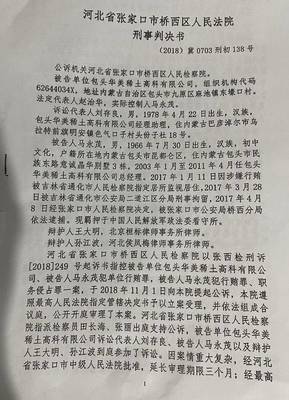 河北省张家口市桥西区人民法院
刑事判决书
（2018）冀0703刑初138号
公诉机关河北省张家口市桥西区人民检察院。
被告单位包头华美稀土高科有限公司，组织机构代码
62644034X，地址内蒙古自治区包头市九原区麻池镇东壕口村。
法定代表人赵治华，实际控制人马永茂。
诉讼代表人刘存良，男，1978年4月22日出生，汉族，
包头华美稀土高科有限公司总经理助理，住内蒙古巴彦淖尔市乌
拉特前旗明安镇色气口子村头份子社18号。
被告人马永茂，男，1966年7月30日出生，汉族，初中
文化，户籍所在地内蒙古包头市昆都仑区，住内蒙古包头市民
族东路意城晶华别墅3栋。2003年1月至2011年4月任包头
华美稀土高科有限公司总经理。2017年1月11日因涉嫌行贿
被吉林省通化市人民检察院指定居所监视居住，2017年3月28
日被吉林省通化市公安局二道江区分局刑事拘留，2017年4月
8日经张家口市人民检察院决定，被张家口市公安局桥西分局
依法逮捕。现羁押于中国人民解放军政法委看守所。
辩护人王大明，北京桓标律师事务所律师。
辩护人孙江波，河北侯凤梅律师事务所律师。
河北省张家口市桥西区人民检察院以张西检刑诉
[2018]249号起诉书指控被告单位包头华美稀土高科有限公
司、被告人马永茂犯单位行贿罪，被告人马永茂犯行贿罪、职
务侵占罪一案，于2018年11月1日向本院提起公诉，本院遵
照最高人民法院指定管辖决定书予以立案受理，并依法组成合
议庭，公开开庭审理了本案。河北省张家口市桥西区人民检察院
指派检察员田长海、张丽出庭支持公诉，被告单位包头华美稀
土高科有限公司诉讼代表人刘存良、被告人马永茂以及辩护
人王大明、孙江波到庭参加了诉讼。因案情重大复杂，经河北
省张家口市中级人民法院批准，延长审理期限三个月；经最高
1